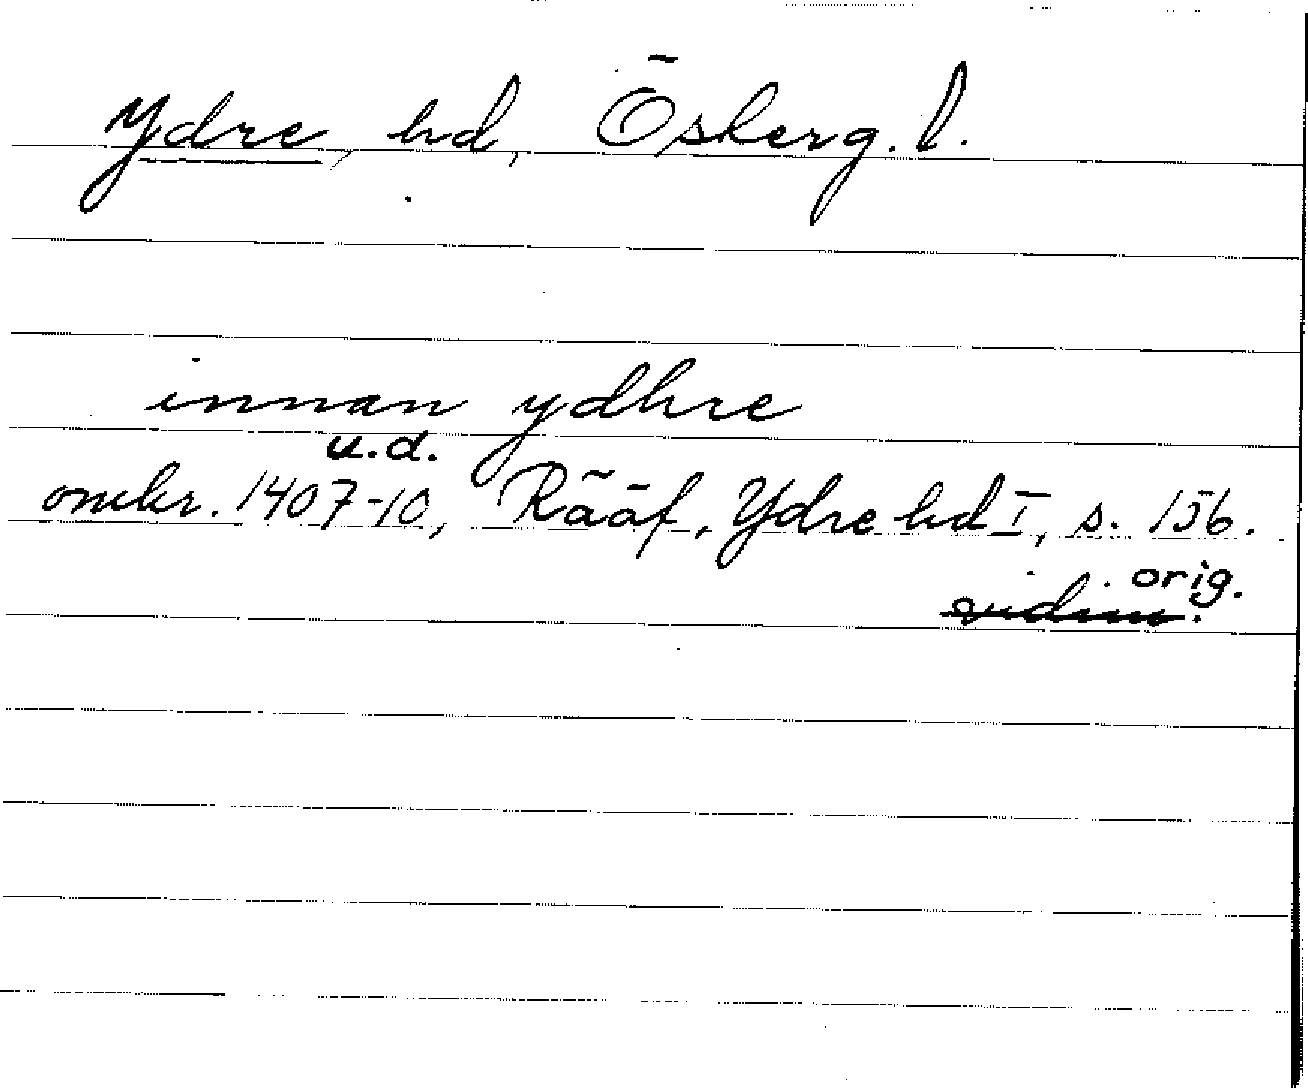 Ydre, hd, Östergs. l.
innan ydhre
u.d.
omkr. 1407-10, Rääf, Ydre hd I, s. 156.
orig.
vidim.